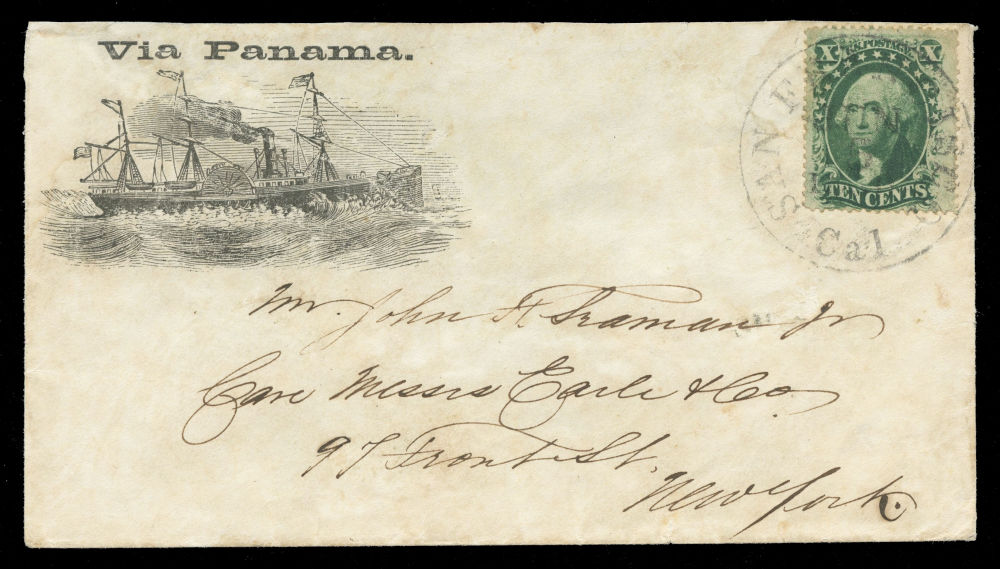 Via Panama.
X U.S. POSTAGE X
TEN CENTS
SAN F
Cal
Mr. John H. Seaman Jr
Care Messrs Earle & Co
97 Front St.
New York.